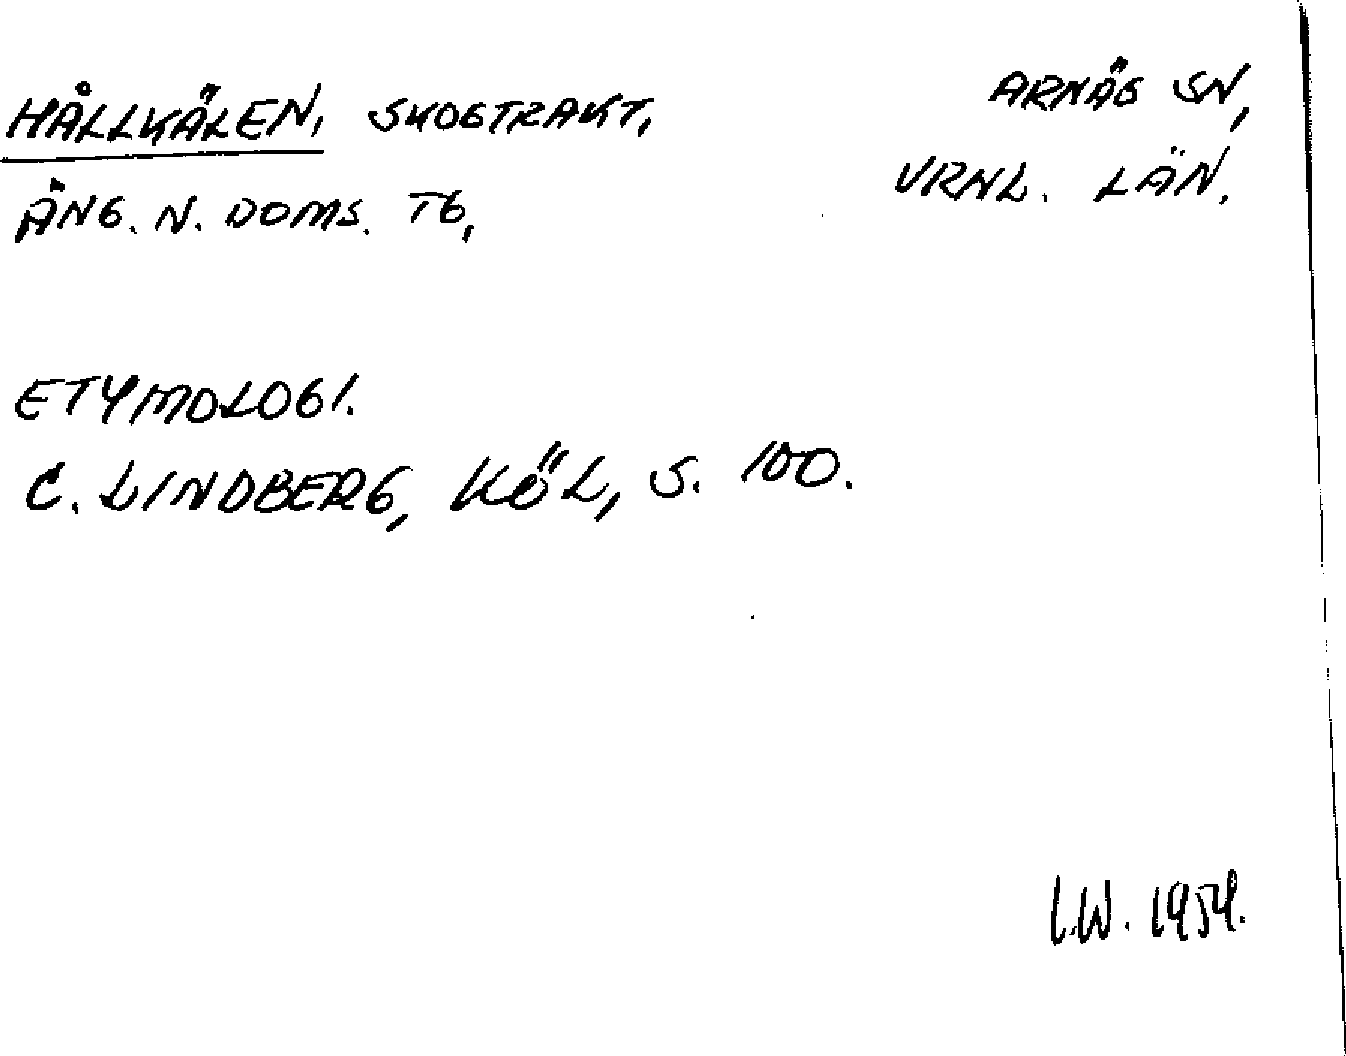 HÅLLKÄLEN, SKOGTRAKT,
ARNÄS SN,
ÅNG. N. DOMS. TG,
VRNL. LÄN.
ETYMOLOGI.
C. LINDBERG, KÖL, S. 100.
L.W. 1954.